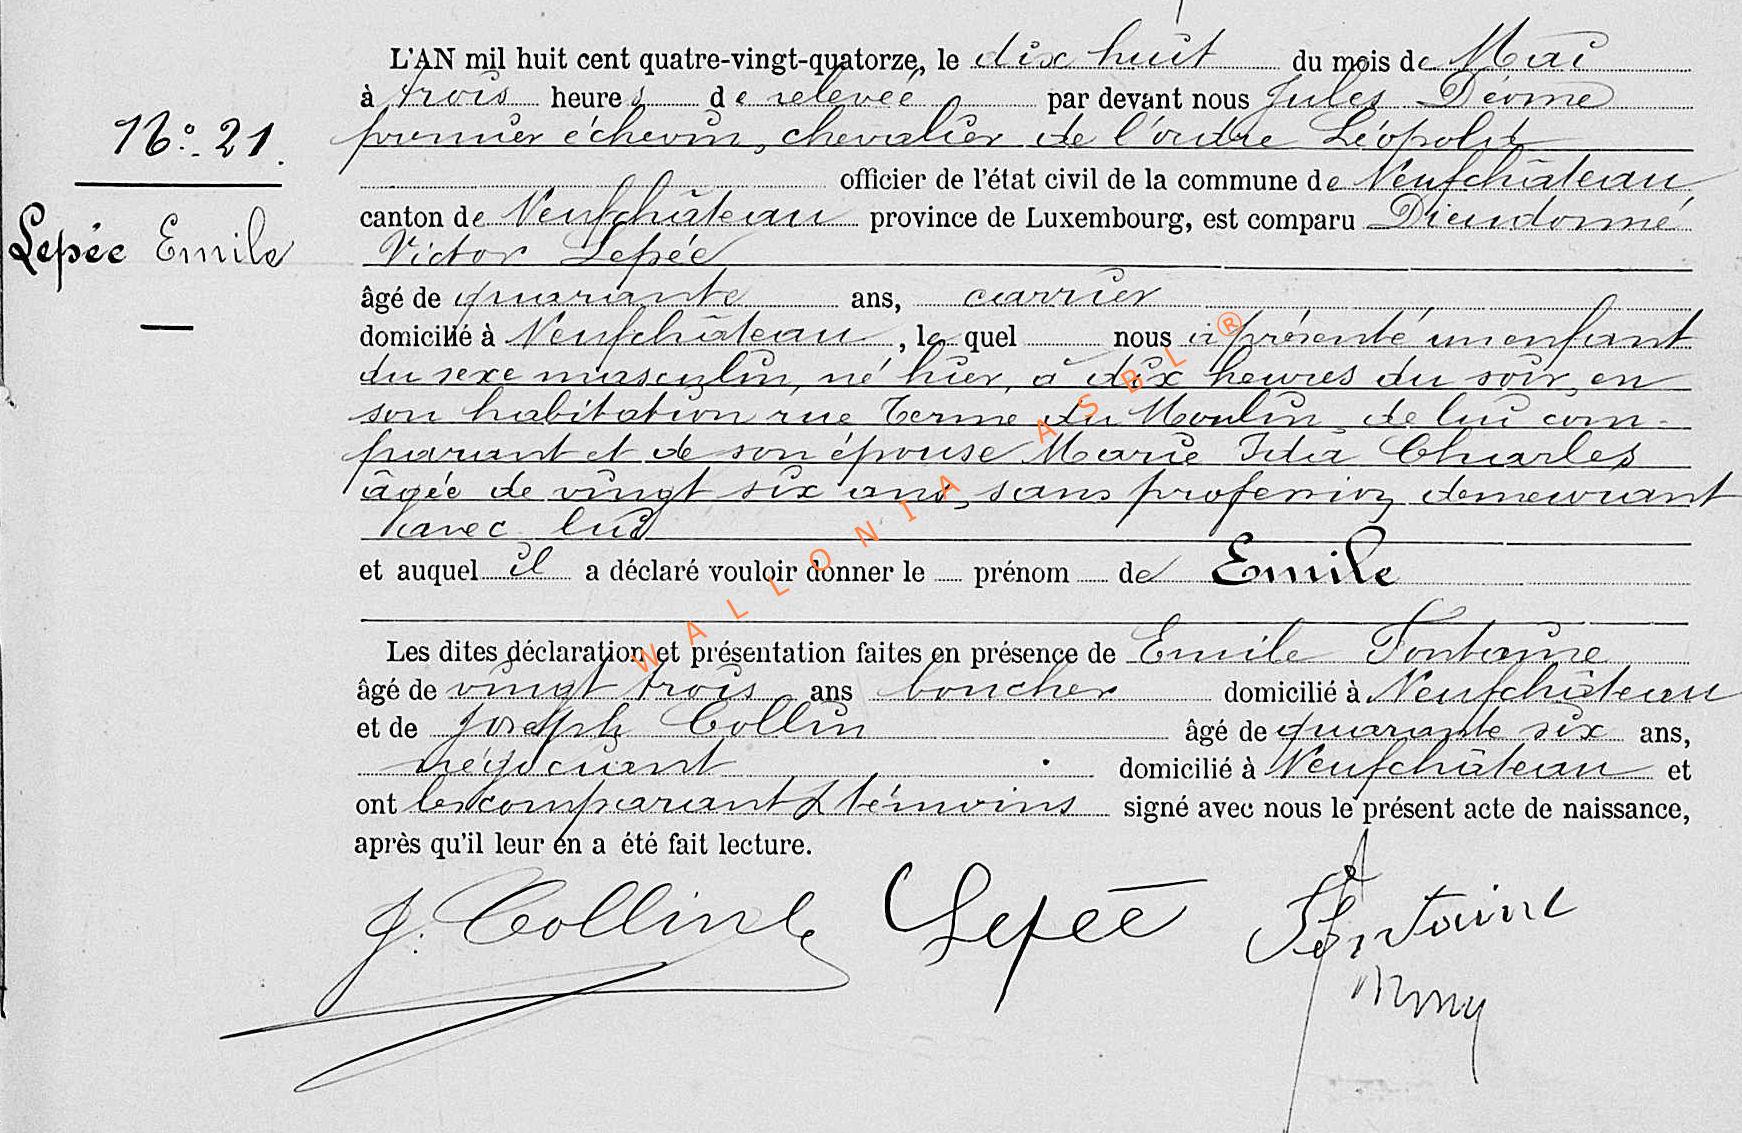 L'AN mil huit cent quatre-vingt-quatorze, le dix huit du mois de Mai
à trois heures de relevée par devant nous Jules Déome
premier échevin, chevalier de l'ordre Léopold
officier de l'état civil de la commune de Neufchâteau
canton de Neufchâteau province de Luxembourg, est comparu Dieudonné
Victor Lepée
âgé de quarante ans, carrier
domicilié à Neufchâteau, lequel nous a présenté un enfant
du sexe masculin, né hier, à dix heures du soir, en
son habitation rue Terme du Moulin, de lui com-
parant et de son épouse Marie Ida Charles
âgée de vingt six ans, sans profession, demeurant
avec lui
et auquel il a déclaré vouloir donner le prénom de Emile
Les dites déclaration et présentation faites en présence de Emile Fontaine
âgé de vingt trois ans boucher domicilié à Neufchâteau
et de Joseph Collin âgé de quarante six ans,
négociant domicilié à Neufchâteau et
ont les comparant & témoins signé avec nous le présent acte de naissance,
après qu'il leur en a été fait lecture.
No. 21.
Lepée Emile
WALLONIA ASBL ®
J. Collin Lepée Fontaine